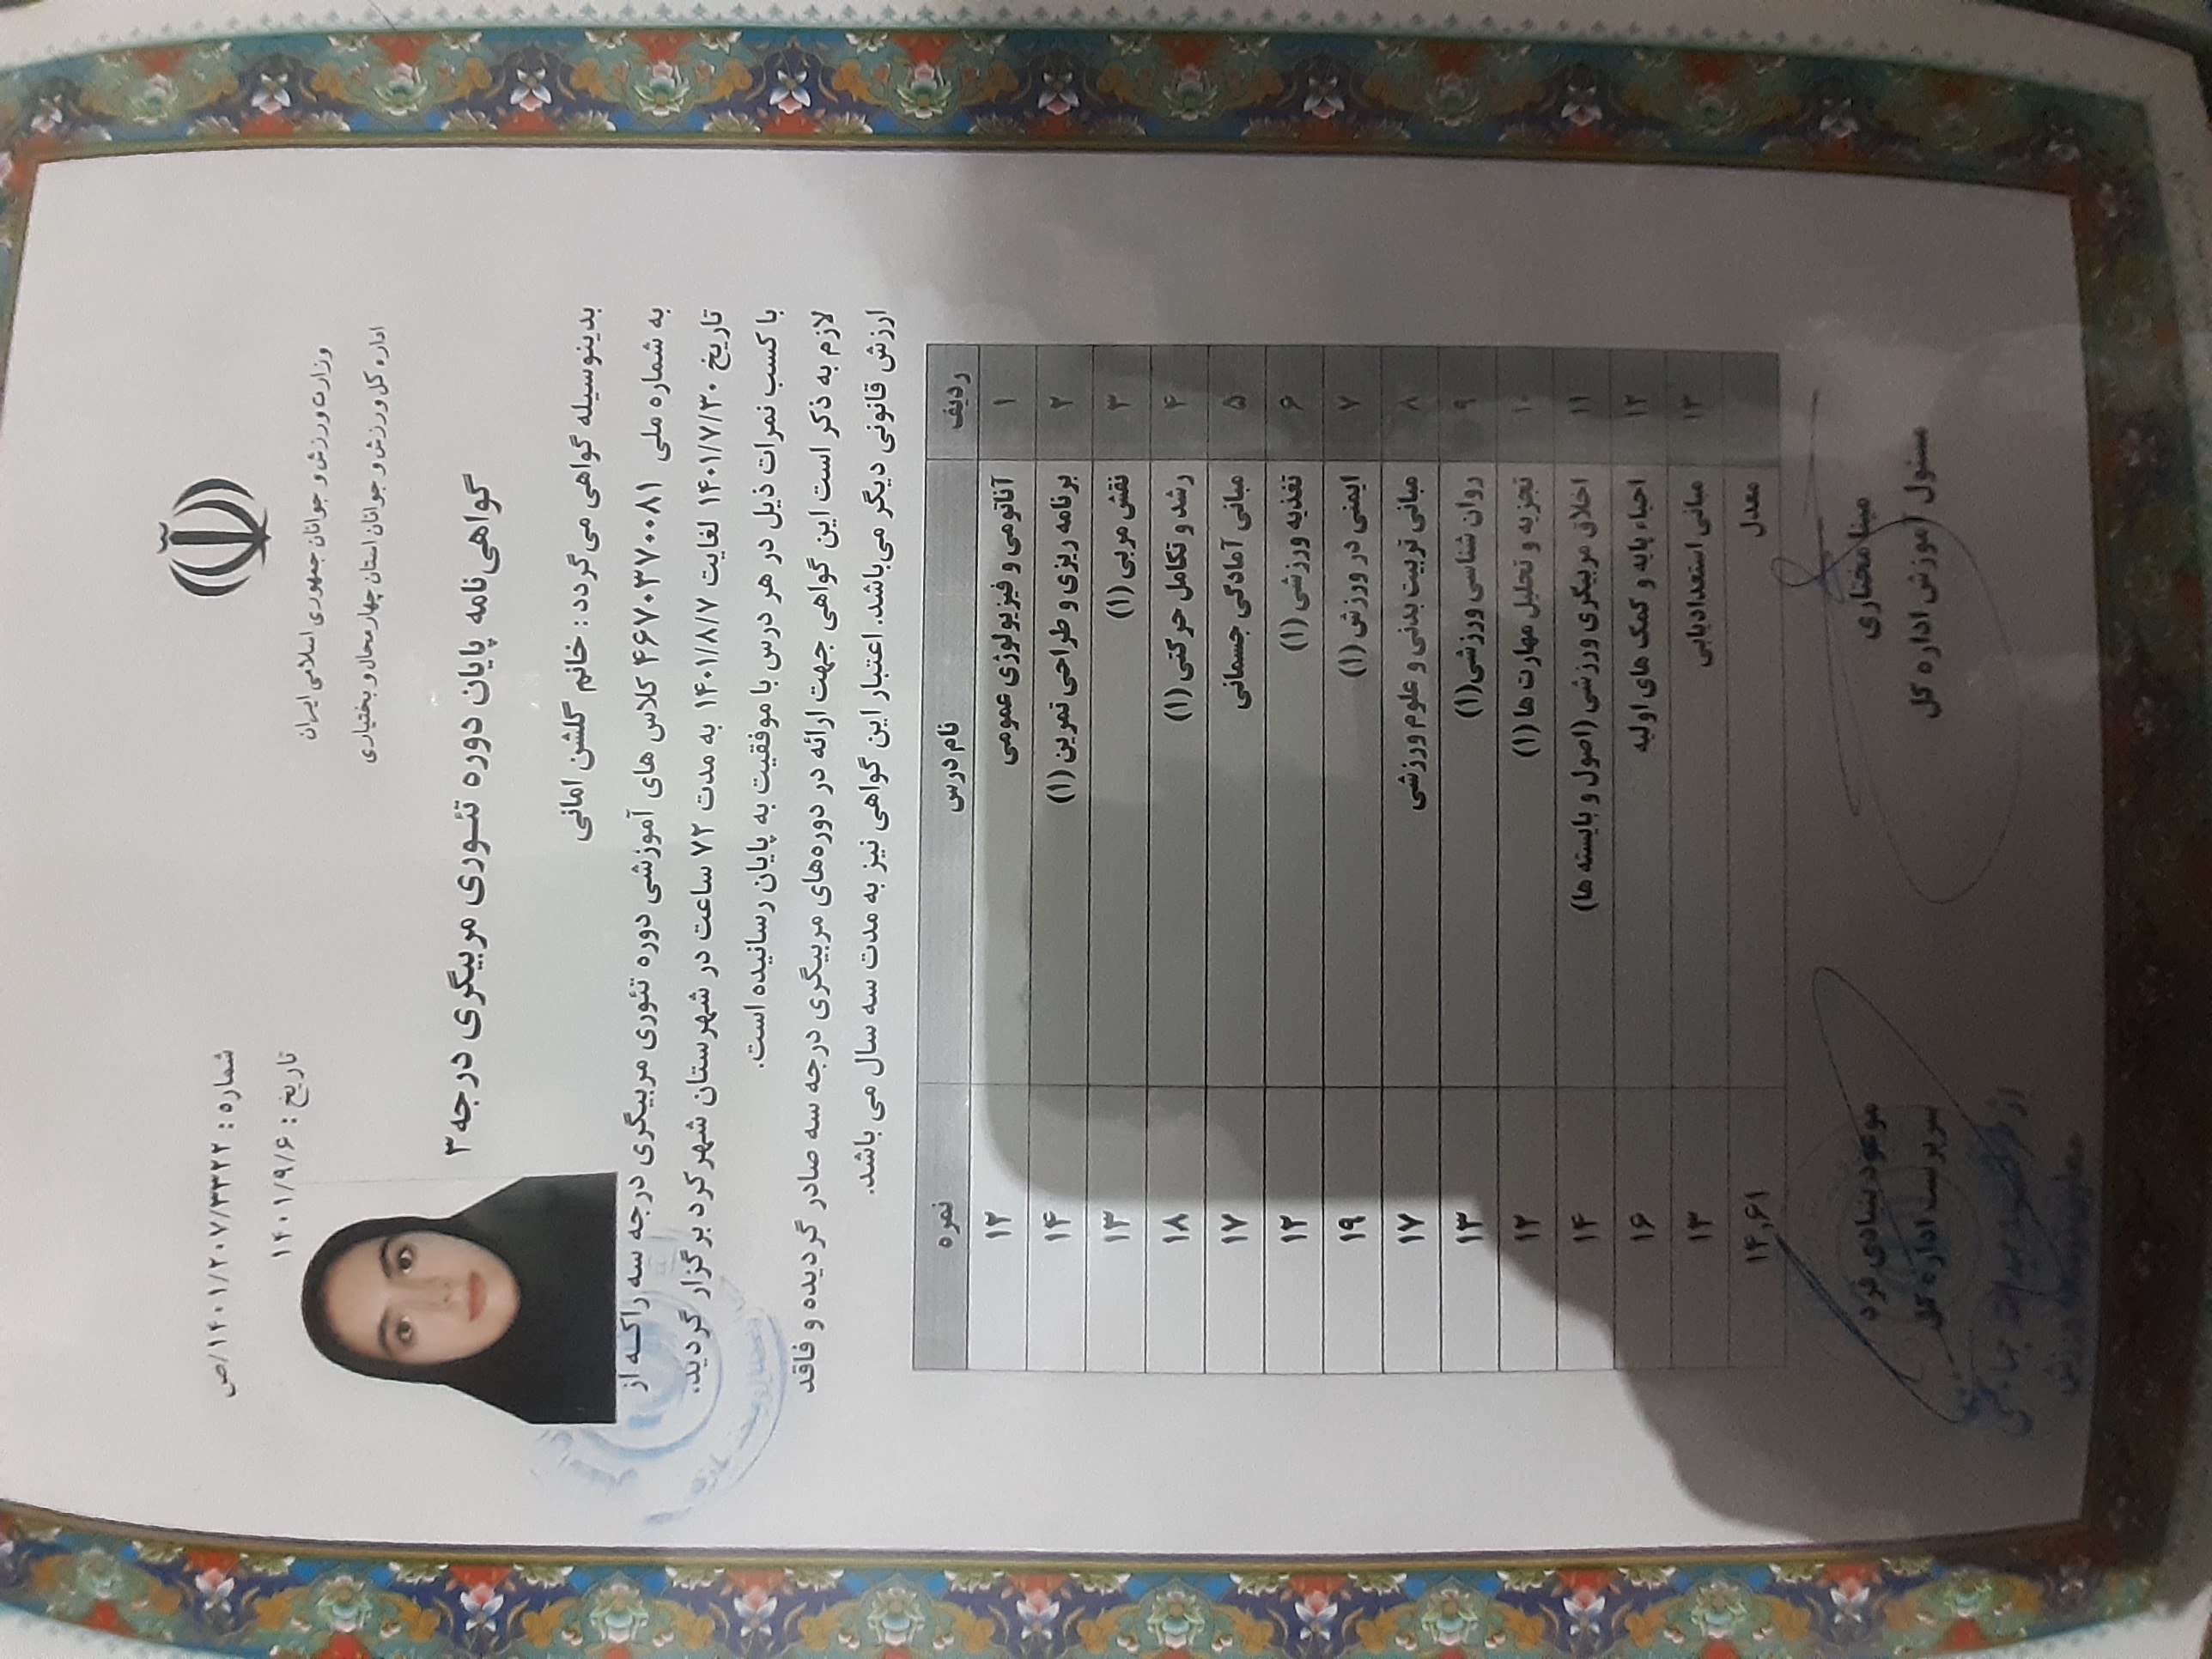 وزارت ورزش و جوانان جمهوری اسلامی ایران
اداره کل ورزش و جوانان استان چهارمحال و بختیاری
شماره : ۱۴۰۱/۲۰۷/۳۳۲۲/ص
تاریخ : ۱۴۰۱/۹/۶
گواهی‌نامه پایان دوره تئوری مربیگری درجه ۳
بدینوسیله گواهی می گردد : خانم گلشن امانی
به شماره ملی ۴۶۷۰۳۷۰۰۸۱ کلاس های آموزشی دوره تئوری مربیگری درجه سه را که از
تاریخ ۱۴۰۱/۷/۳۰ لغایت ۱۴۰۱/۸/۷ به مدت ۷۲ ساعت در شهرستان شهرکرد برگزار گردید،
با کسب نمرات ذیل در هر درس با موفقیت به پایان رسانیده است.
لازم به ذکر است این گواهی جهت ارائه در دوره‌های مربیگری درجه سه صادر گردیده و فاقد
ارزش قانونی دیگر می‌باشد. اعتبار این گواهی نیز به مدت سه سال می باشد.
ردیف نام درس نمره
۱ آناتومی و فیزیولوژی عمومی ۱۲
۲ برنامه ریزی و طراحی تمرین (۱) ۱۴
۳ نقش مربی (۱) ۱۳
۴ رشد و تکامل حرکتی (۱) ۱۸
۵ مبانی آمادگی جسمانی ۱۷
۶ تغذیه ورزشی (۱) ۱۲
۷ ایمنی در ورزش (۱) ۱۹
۸ مبانی تربیت بدنی و علوم ورزشی ۱۷
۹ روان شناسی ورزشی(۱) ۱۳
۱۰ تجزیه و تحلیل مهارت ها (۱) ۱۲
۱۱ اخلاق مربیگری ورزشی (اصول و بایسته ها) ۱۴
۱۲ احیاء پایه و کمک های اولیه ۱۶
۱۳ مبانی استعدادیابی ۱۳
معدل ۱۴,۶۱
مینا مختاری
مسئول آموزش اداره کل
موعود بنیادی فرد
سرپرست اداره کل